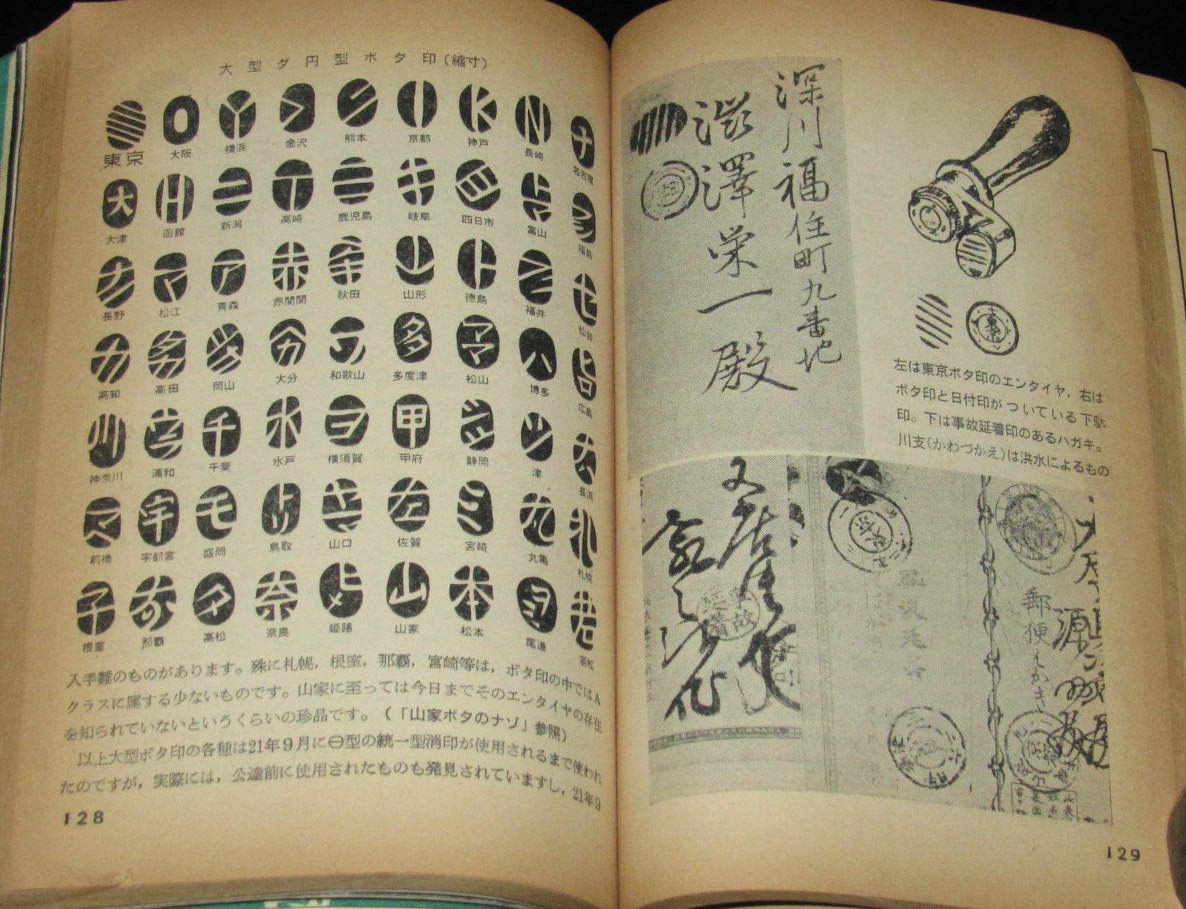 大型ダ円型ボタ印(縮寸)
東京 大阪 横浜 金沢 熊本 京都 神戸 長崎 名古屋
大津 函館 新潟 高崎 鹿児島 岐阜 四日市 富山 福島
長野 松江 青森 赤間関 秋田 山形 徳島 福井 仙台
高知 高田 岡山 大分 和歌山 多度津 松山 博多 広島
神奈川 浦和 千葉 水戸 横須賀 甲府 静岡 津 長浜
前橋 宇都宮 盛岡 鳥取 山口 佐賀 宮崎 丸亀 札幌
根室 那覇 高松 奈良 姫路 山家 松本 尾道 若松
入手難のものがあります。殊に札幌,根室,那覇,宮崎等は,ボタ印の中ではA
クラスに属する少ないものです。山家に至っては今日までそのエンタイヤの存在
を知られていないというくらいの珍品です。(「山家ボタのナゾ」参照)
以上大型ボタ印の各種は21年9月に㊀型の統一型消印が使用されるまで使われ
たのですが,実際には,公達前に使用されたものも発見されていますし,21年9
128
深川福住町九番地
澁澤栄一殿
左は東京ボタ印のエンタイヤ,右は
ボタ印と日付印がついている下駄
印。下は事故延着印のあるハガキ。
川支(かわづかえ)は洪水によるもの
郵便はかき
129